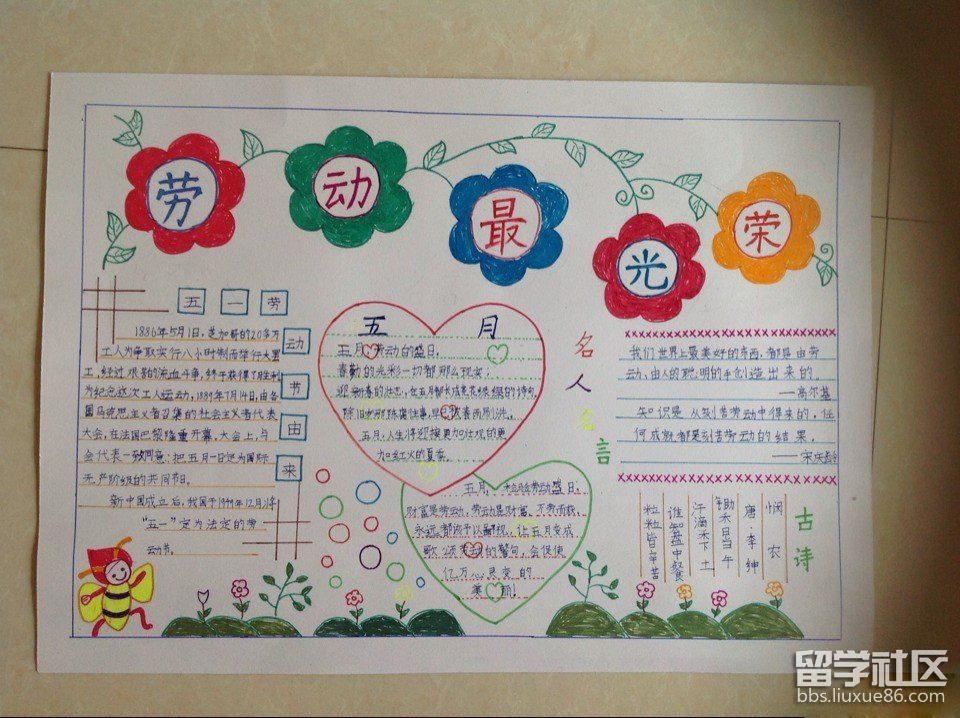 劳动最光荣
五一劳动节由来
1886年5月1日,芝加哥的20多万
工人为争取实行八小时制而举行大罢
工,经过艰苦的流血斗争,终于获得了胜利
为纪念这次工人运动,1889年7月14日,由各
国马克思主义者召集的社会主义者代表
大会,在法国巴黎隆重开幕,大会上,与
会代表一致同意:把五月一日定为国际
无产阶级的共同节日。
新中国成立后,我国于1949年12月将
“五一”定为法定的劳
动节。
五月
五月,劳动的盛日,
喜勤的光彩一切都那么现实;
五月,人生将迎接更加壮观的更
加红火的夏夜。
五月,劳动盛日:
财富是劳动,劳动是财富,不劳而获,
永远都该予以鄙视,让五月变成
歌颂劳动的警句,会促使
亿万心灵变的
美丽!
名人名言
我们世界上最美好的东西,都是由劳
动、由人的聪明的手创造出来的。
——高尔基
知识是从刻苦劳动中得来的,任
何成就都是刻苦劳动的结果。
——宋庆龄
古诗
悯农
唐·李绅
锄禾日当午
汗滴禾下土
谁知盘中餐
粒粒皆辛苦
留学社区
bbs.liuxue86.com